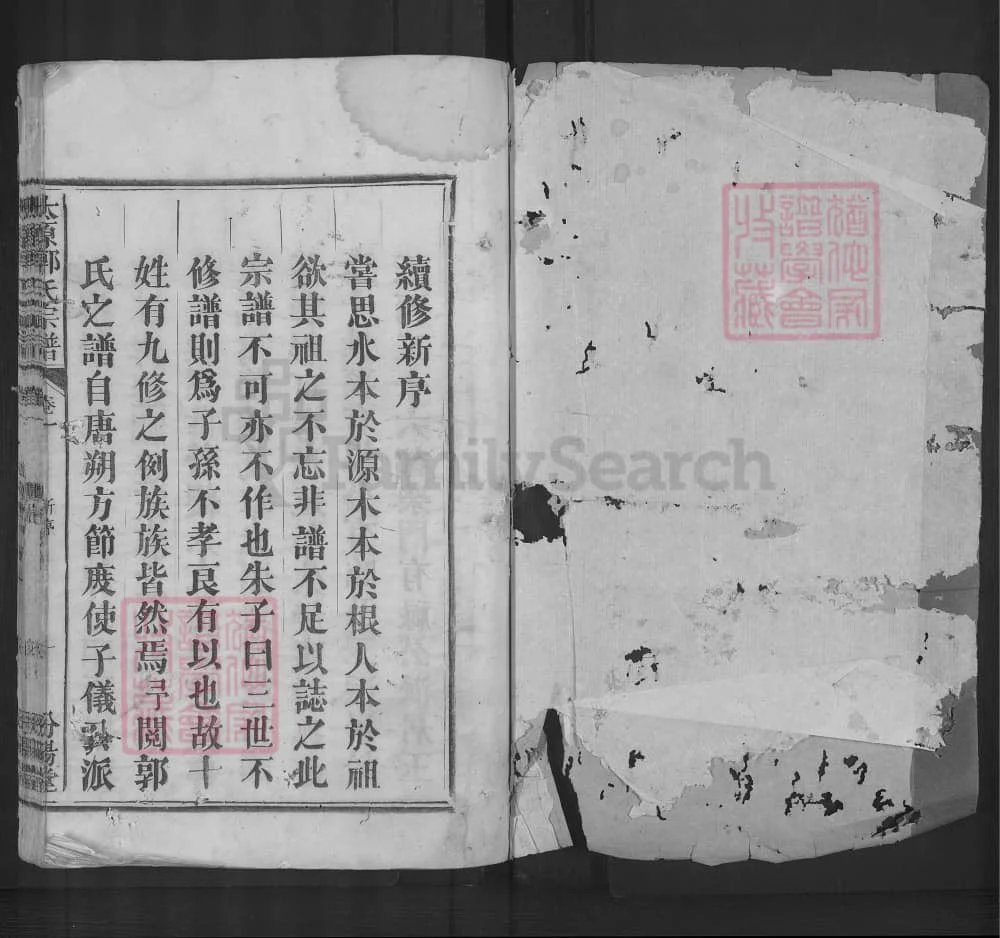 續修新序
嘗思水本於源木本於根人本於祖
欲其祖之不忘非譜不足以誌之此
宗譜不可亦不作也朱子曰三世不
修譜則爲子孫不孝良有以也故十
姓有九修之例族族皆然焉予閱郭
氏之譜自唐朔方節度使子儀公派
太原郭氏宗譜 卷一 新序 一 汾陽堂
FamilySearch
譜學會
收藏